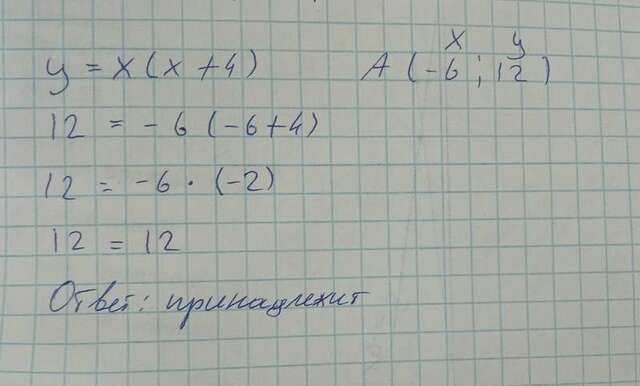 x y
y = x(x+4) A(-6; 12)
12 = -6(-6+4)
12 = -6 · (-2)
12 = 12
Ответ: принадлежит